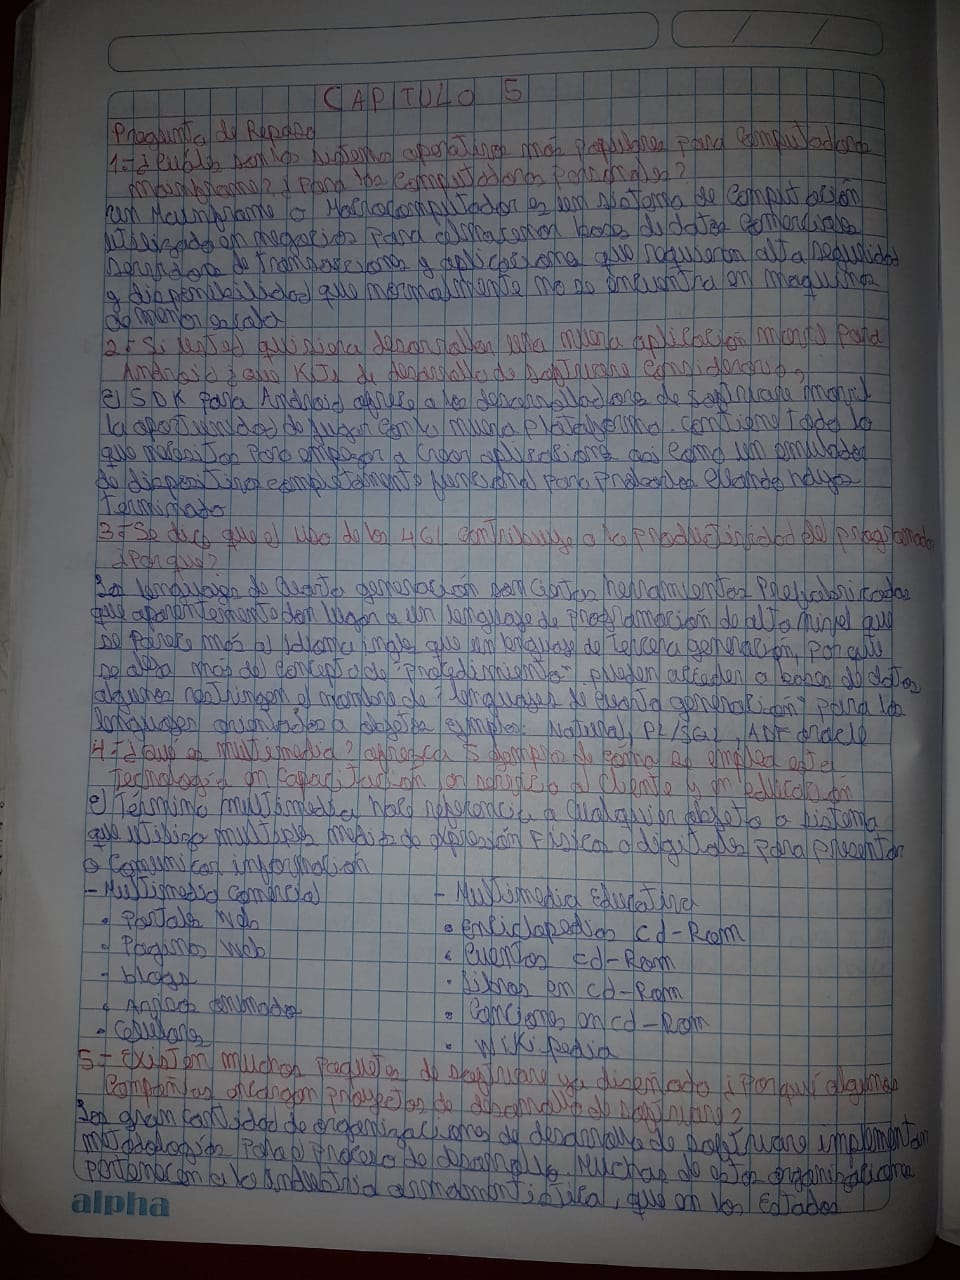 CAPITULO 5
Pregunta de Repaso
1-¿Cuáles son los sistemas operativos más populares para computadoras
mainframe? ¿Para las computadoras personales?
un Mainframe o Macrocomputador es un sistema de computación
utilizado en negocios para almacenar bases de datos comerciales
servidores de transacciones y aplicaciones que requieren alta seguridad
y disponibilidad que normalmente no se encuentra en maquinas
de menor escala
2- Si usted quisiera desarrollar una nueva aplicación movil para
Android ¿que Kits de desarrollo de software consideraria?
el SDK para Android ofrece a los desarrolladores de software movil
la oportunidad de jugar con la nueva plataforma. contiene todo lo
que necesitas para empezar a crear aplicaciones asi como un emulador
de dispositivo completamente funcional para probarlas cuando hayas
Terminado
3- Se dice que el uso de los 4GL contribuye a la productividad del programador
¿Por que?
los lenguajes de cuarta generación son ciertas herramientas Prefabricadas
que aparentemente dan lugar a un lenguaje de programación de alto nivel que
se parece más al Idioma ingles que un lenguaje de tercera generación, porque
se aleja más del concepto de "procedimiento" pueden acceder a bases de datos
algunos restringen el nombre de "lenguajes de cuarta generación" para los
lenguajes orientados a objetos ejemplo: Natural, PL/SQL, ADF oracle
4- ¿que es multimedia? ofrezca 5 ejemplos de cómo se emplea esta
Tecnología en capacitacion en servicio a cliente y en educación
el Término multimedia hace referencia a cualquier objeto o sistema
que utiliza multiples medios de expresión Fisicos o digitales para presentar
o comunicar información
- Multimedia comercial - Multimedia Educativa
• Portales Web • enciclopedias cd-Room
• Paginas Web • Cuentos cd-Room
- blogs • Libros en cd-Room
• Anuncios animados • Canciones en cd-Room
• celulares • Wikipedia
5- Existen muchos paquetes de software ya diseñado ¿Por qué algunas
Compañias encargan proyectos de desarrollo de software?
gran cantidad de organizaciones de desarrollo de software implementan
metodologías para el proceso de desarrollo. Muchas de estas organizaciones
pertenecen a la industria armamentistica, que en los Estados
alpha